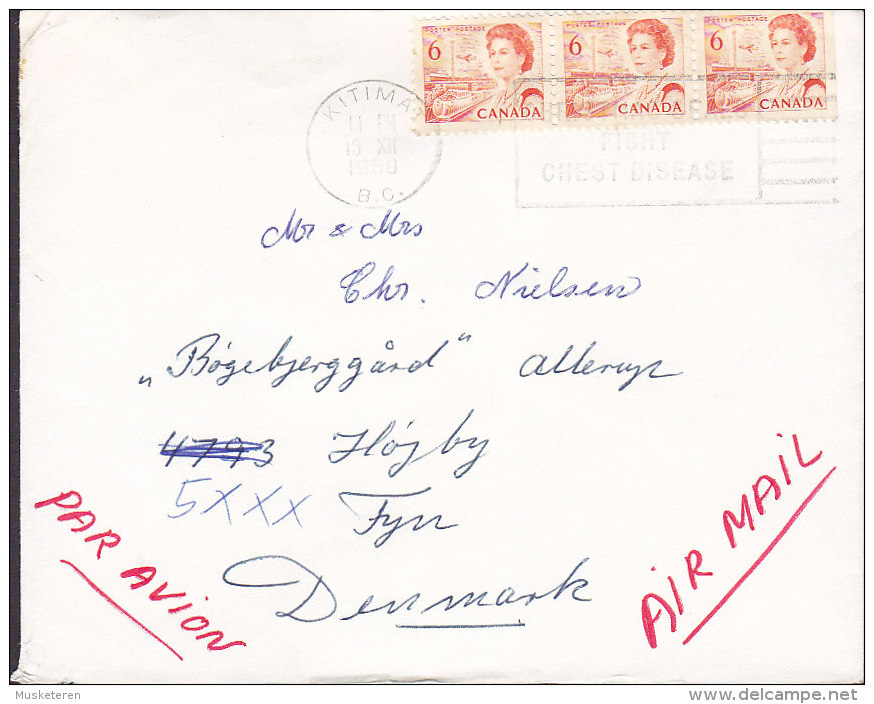 6 POSTES POSTAGE CANADA
6 POSTES POSTAGE CANADA
6 POSTES POSTAGE CANADA
KITIMAT
11 PM
13 XII
1969
B.C.
FIGHT
CHEST DISEASE
Mr & Mrs
Chr. Nielsen
„Bøgebjerggård" Allerup
4793 Højby
5XXX Fyn
Denmark
PAR AVION
AIR MAIL
Musketeren
delcampe.net